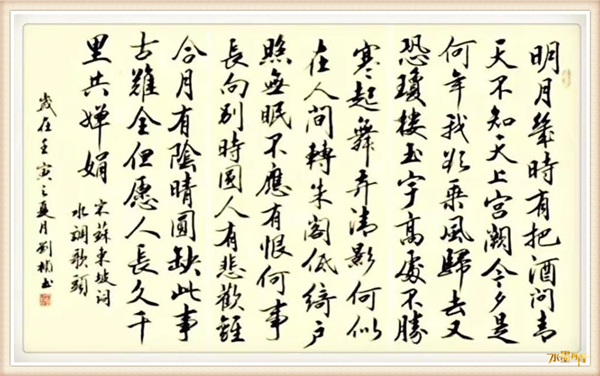 明月幾時有把酒問青
天不知天上宫阙今夕是
何年我欲乗風歸去又
恐瓊楼玉宇高處不勝
寒起舞弄清影何似
在人间轉朱阁低绮户
照無眠不應有恨何事
長向别時圓人有悲歡離
合月有陰晴圓缺此事
古難全但愿人長久千
里共嬋娟
宋蘇東坡词
水调歌頭
歲在壬寅之夏月劉楠书